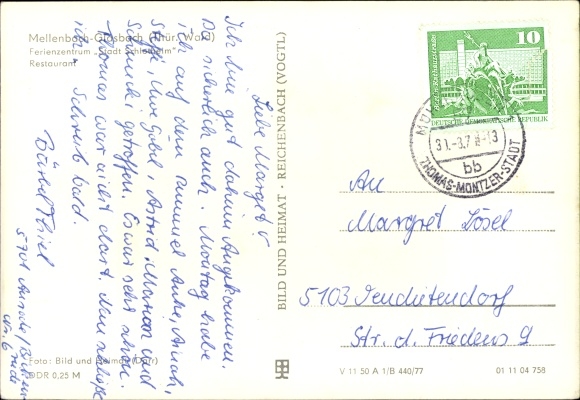 Mellenbach-Glasbach (Thür. Wald)
Ferienzentrum „Stadt
Restaurant
Liebe Margret!
Ich bin gut daheim Angekommen.
Du sicherlich auch. Montag habe
ich auf dem Rummel Anke, Auch,
Steffi, Uwe Göbel, Astrid, Marion und
getroffen. Es war sehr schön.
Thomas war nicht dort. Nun schließe
ich. Schreib bald.
Bärbel
5701
Nr. 6
Foto: Bild und Heimat (Dörr)
DDR 0,25 M
BILD UND HEIMAT · REICHENBACH (VOGTL)
10
DEUTSCHE DEMOKRATISCHE REPUBLIK
31.-8.7
-13
bb
THOMAS-MÜNTZER-STADT
An
Margret Lösel
5103 Neudietendorf
Str. d. Friedens 9
V 11 50 A 1/B 440/77
01 11 04 758